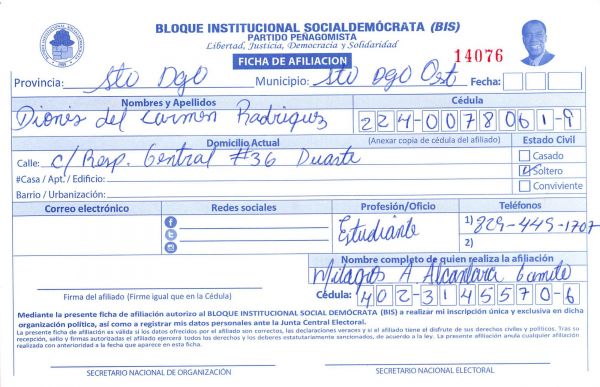 BLOQUE INSTITUCIONAL SOCIALDEMÓCRATA (BIS)
PARTIDO PEÑAGOMISTA
Libertad, Justicia, Democracia y Solidaridad
FICHA DE AFILIACION
14076
Provincia: Sto Dgo Municipio: Sto Dgo Ost Fecha:
Nombres y Apellidos Cédula
Dionis del Carmen Rodriguez 224-0078061-9
Domicilio Actual (Anexar copia de cédula del afiliado) Estado Civil
Calle: C/ Resp. Central #36 Duarte Casado
#Casa / Apt. / Edificio: Soltero
Barrio / Urbanización: Conviviente
Correo electrónico Redes sociales Profesión/Oficio Teléfonos
Estudiante 1) 829-449-1707
2)
Nombre completo de quien realiza la afiliación
Milagros A. Alcantara
Firma del afiliado (Firme igual que en la Cédula) Cédula: 402-3145570-6
Mediante la presente ficha de afiliación autorizo al BLOQUE INSTITUCIONAL SOCIAL DEMÓCRATA (BIS) a realizar mi inscripción única y exclusiva en dicha
organización política, así como a registrar mis datos personales ante la Junta Central Electoral.
La presente ficha de afiliación es válida si los datos ofrecidos por el afiliado son correctos, las declaraciones veraces y si el afiliado tiene el disfrute de sus derechos civiles y políticos. Tras su
recepción, sello y firmas autorizadas el afiliado ejercerá todos los derechos y los deberes estatutariamente sancionados, de acuerdo a la ley. La presente afiliación anula cualquier afiliación
realizada con anterioridad a la fecha que aparece en esta ficha.
SECRETARIO NACIONAL DE ORGANIZACIÓN SECRETARIO NACIONAL ELECTORAL